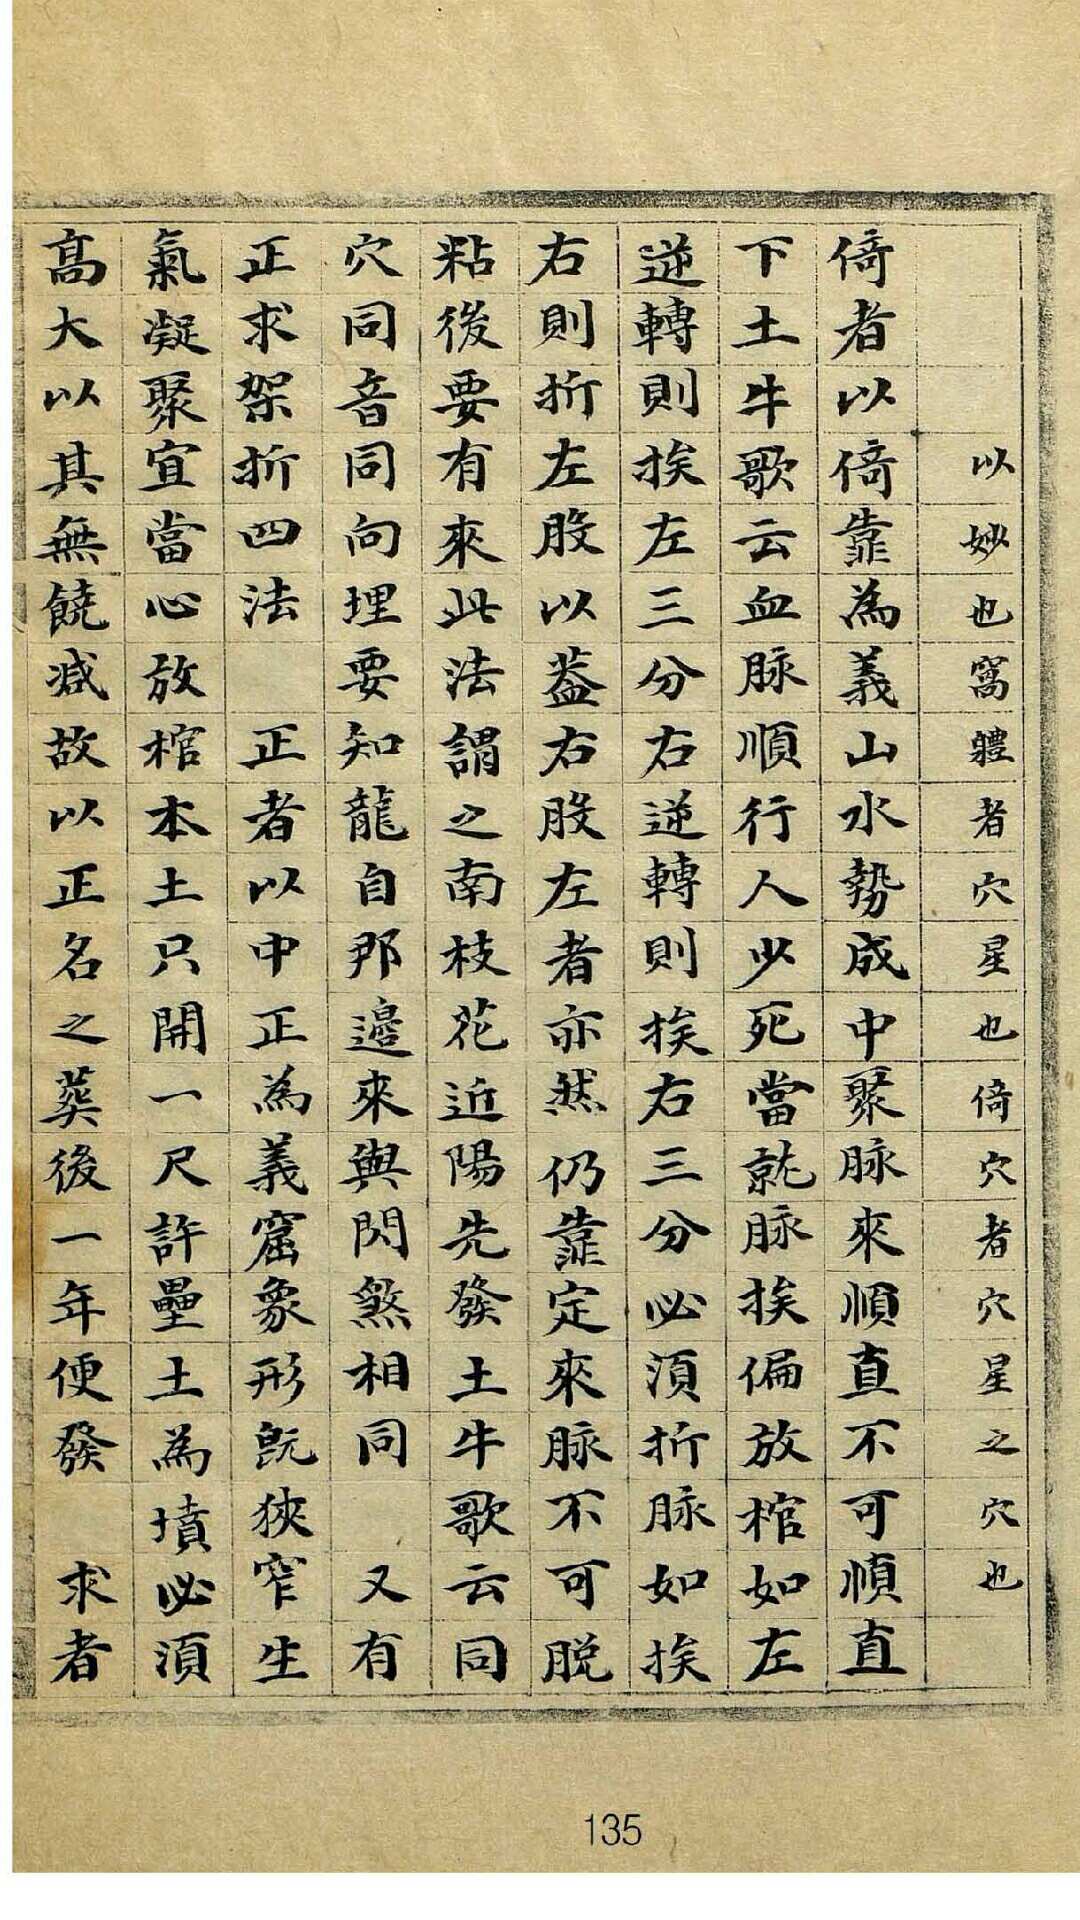 以妙也窩體者穴星也倚穴者穴星之穴也
倚者以倚靠為義山水勢成中聚脉來順直不可順直
下土牛歌云血脉順行人少死當就脉挨偏放棺如左
逆轉則挨左三分右逆轉則挨右三分必湏折脉如挨
右則折左股以葢右股左者亦然仍靠定來脉不可脱
粘後要有來此法謂之南枝花近陽先發土牛歌云同
穴同音同向埋要知龍自那邉來與閃煞相同 又有
正求架折四法 正者以中正為義窟象形旣狹窄生
氣凝聚宜當心放棺本土只開一尺許壘土為墳必湏
髙大以其無饒減故以正名之葬後一年便發 求者
135